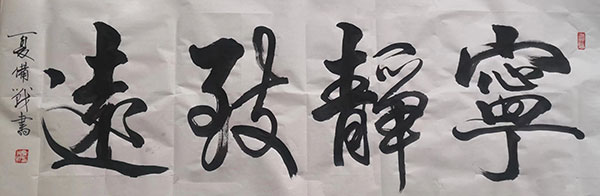 寧靜致遠
夏備戰書